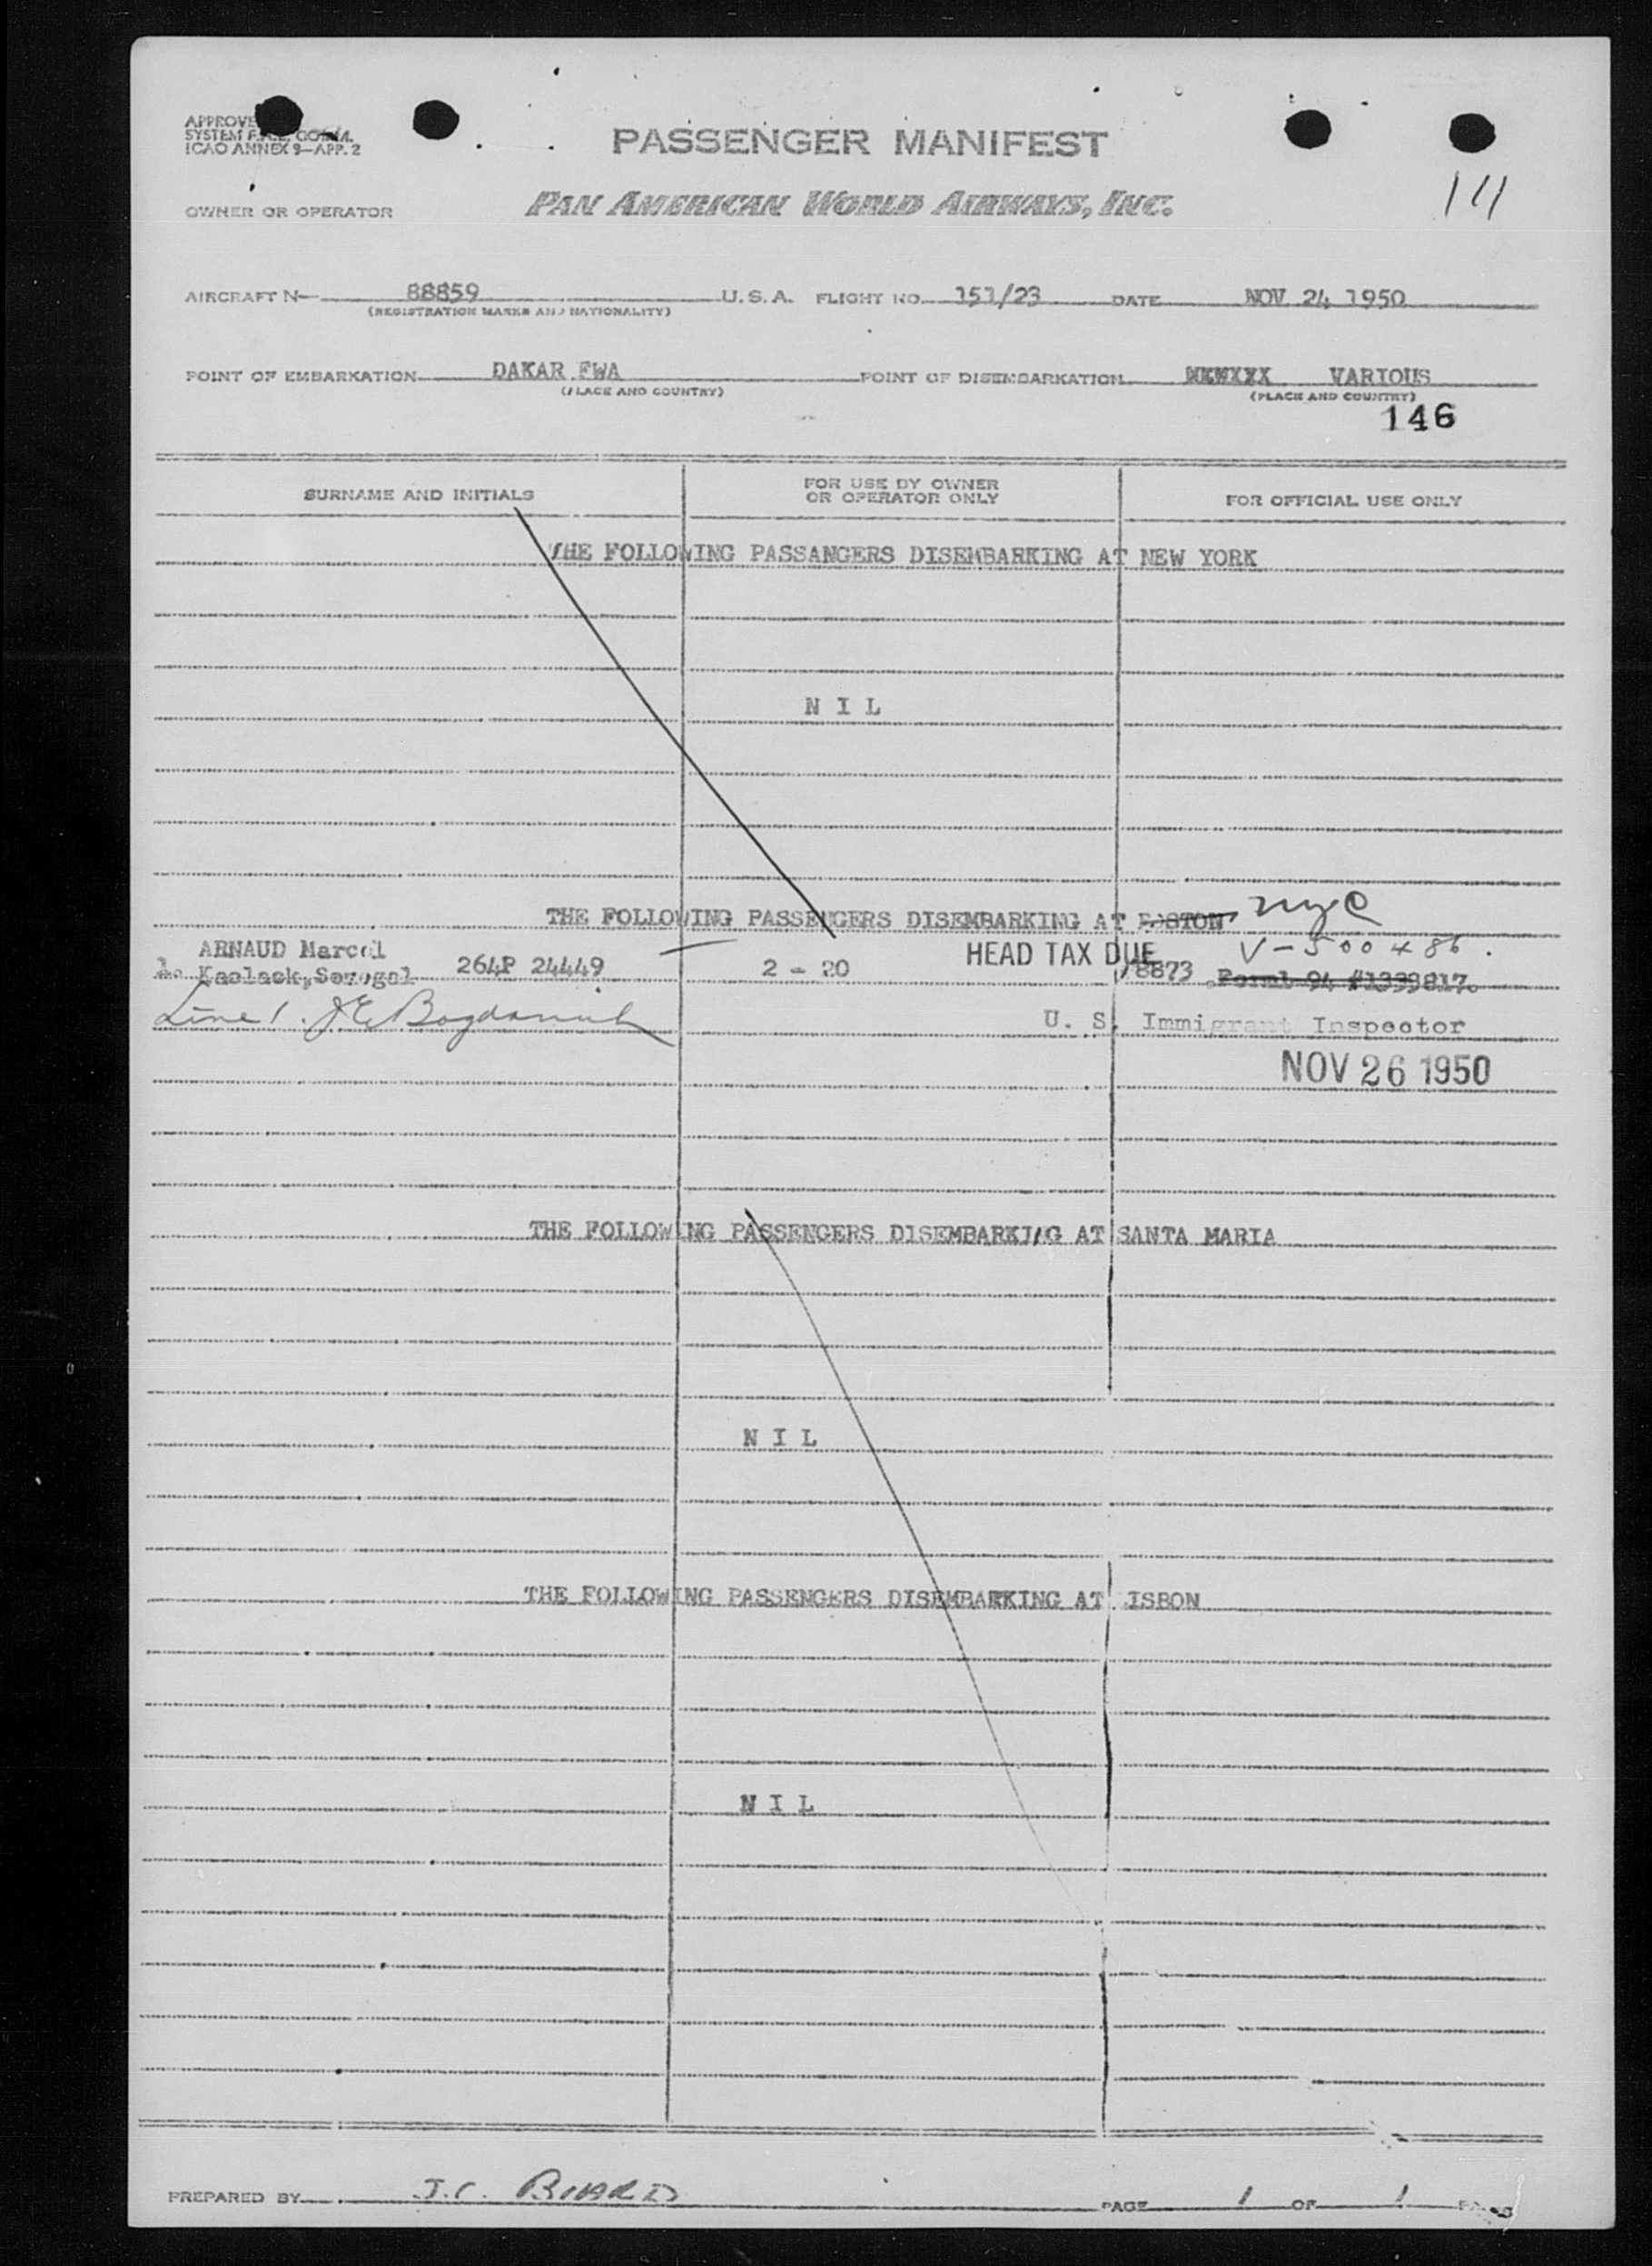 PASSENGER MANIFEST
SYSTEM
ICAO ANNEX 9—APP. 2
111
OWNER OR OPERATOR PAN AMERICAN WORLD AIRWAYS, INC.
AIRCRAFT N— 88859 U. S. A. FLIGHT NO. 151/23 DATE NOV 24 1950
(REGISTRATION MARKS AND NATIONALITY)
POINT OF EMBARKATION DAKAR FWA POINT OF DISEMBARKATION VARIOUS
(PLACE AND COUNTRY) (PLACE AND COUNTRY)
146
SURNAME AND INITIALS
FOR USE BY OWNER
OR OPERATOR ONLY
FOR OFFICIAL USE ONLY
THE FOLLOWING PASSANGERS DISEMBARKING AT NEW YORK
N I L
THE FOLLOWING PASSENGERS DISEMBARKING AT BOSTON nyc
ARNAUD Marcel HEAD TAX DUE V-500486.
1. Kaolack, Senegal 264P 24449 2 - 20 8873
Line 1.
U. S. Immigrant Inspector
NOV 26 1950
THE FOLLOWING PASSENGERS DISEMBARKING AT SANTA MARIA
N I L
THE FOLLOWING PASSENGERS DISEMBARKING AT ISBON
N I L
PREPARED BY J.C. PAGE 1 OF 1